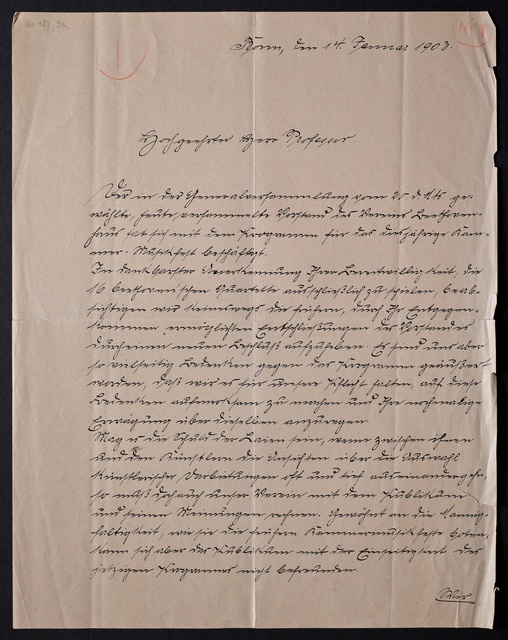 Bonn, den 14. Januar 1903.
Hochgeehrter Herr Professor
Der in der Generalversammlung vom d. Mts. ge-
wählte, heute versammelte Vorstand des Vereins Beethoven-
haus hat sich mit dem Programm für das diesjährige Kam-
mer-Musikfest beschäftigt.
In dankbarster Anerkennung Ihrer Bereitwilligkeit, die
16 Beethoven'schen Quartette ausschließlich zu spielen, beab-
sichtigen wir keineswegs die frühern, durch Ihr Entgegen-
kommen ermöglichten Entschließungen des Vorstandes
durch einen neuen Beschluß aufzuheben. Es sind uns aber
so vielseitig Bedenken gegen das Programm geäußert
worden, daß wir es für unsere Pflicht halten, auf diese
Bedenken aufmerksam zu machen und Ihre nochmalige
Erwägung über dieselben anzuregen.
Mag es die Schuld der Laien sein, wenn zwischen ihnen
und den Künstlern die Ansichten über die Auswahl
künstlerischer Darbietungen oft und tief auseinandergehn,
so muß doch auch unser Verein mit dem Publikum
und seinen Meinungen rechnen. Gewöhnt an die Mannig-
faltigkeit, wie sie die frühern Kammermusikfeste boten,
kann sich aber das Publikum mit der Einseitigkeit des
jetzigen Programmes nicht befreunden.
Wir